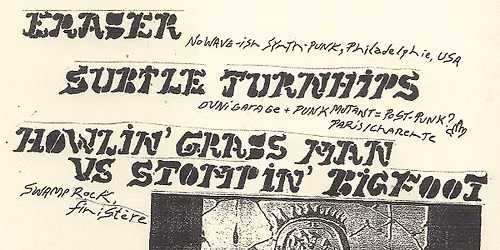 ERASER
NO WAVE-ish SYNTH-PUNK, PhiladelPhie, USA
SUBTLE TURNHIPS
OVNI GARAGE + PUNK MUTANT = POST-PUNK?
PARIS/CHARENTE
HOWLIN' GRASS MAN
VS STOMPIN' BIGFOOT
SWAMP ROCK,
finistère